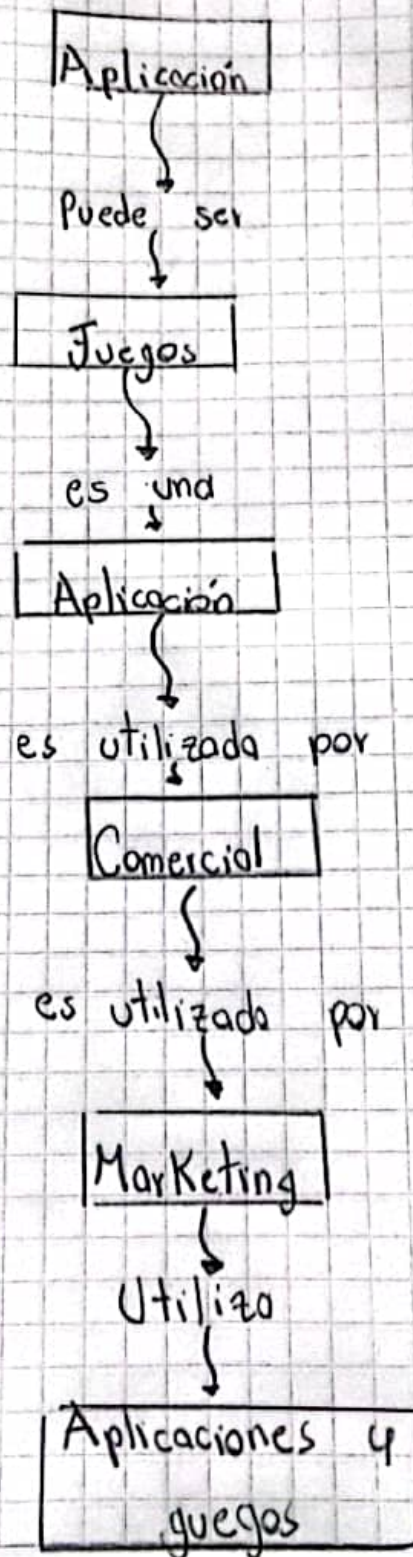 Aplicación
Puede ser
Juegos
es una
Aplicación
es utilizada por
Comercial
es utilizada por
Marketing
Utiliza
Aplicaciones y
guegos